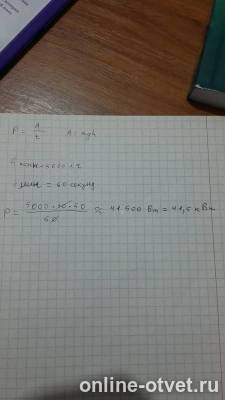 P = A/t   A = mgh
= 5000 кг
= 60 секунд
P = 5000·10·50/60 ≈ 41 500 Вт = 41,5 кВт
online-otvet.ru